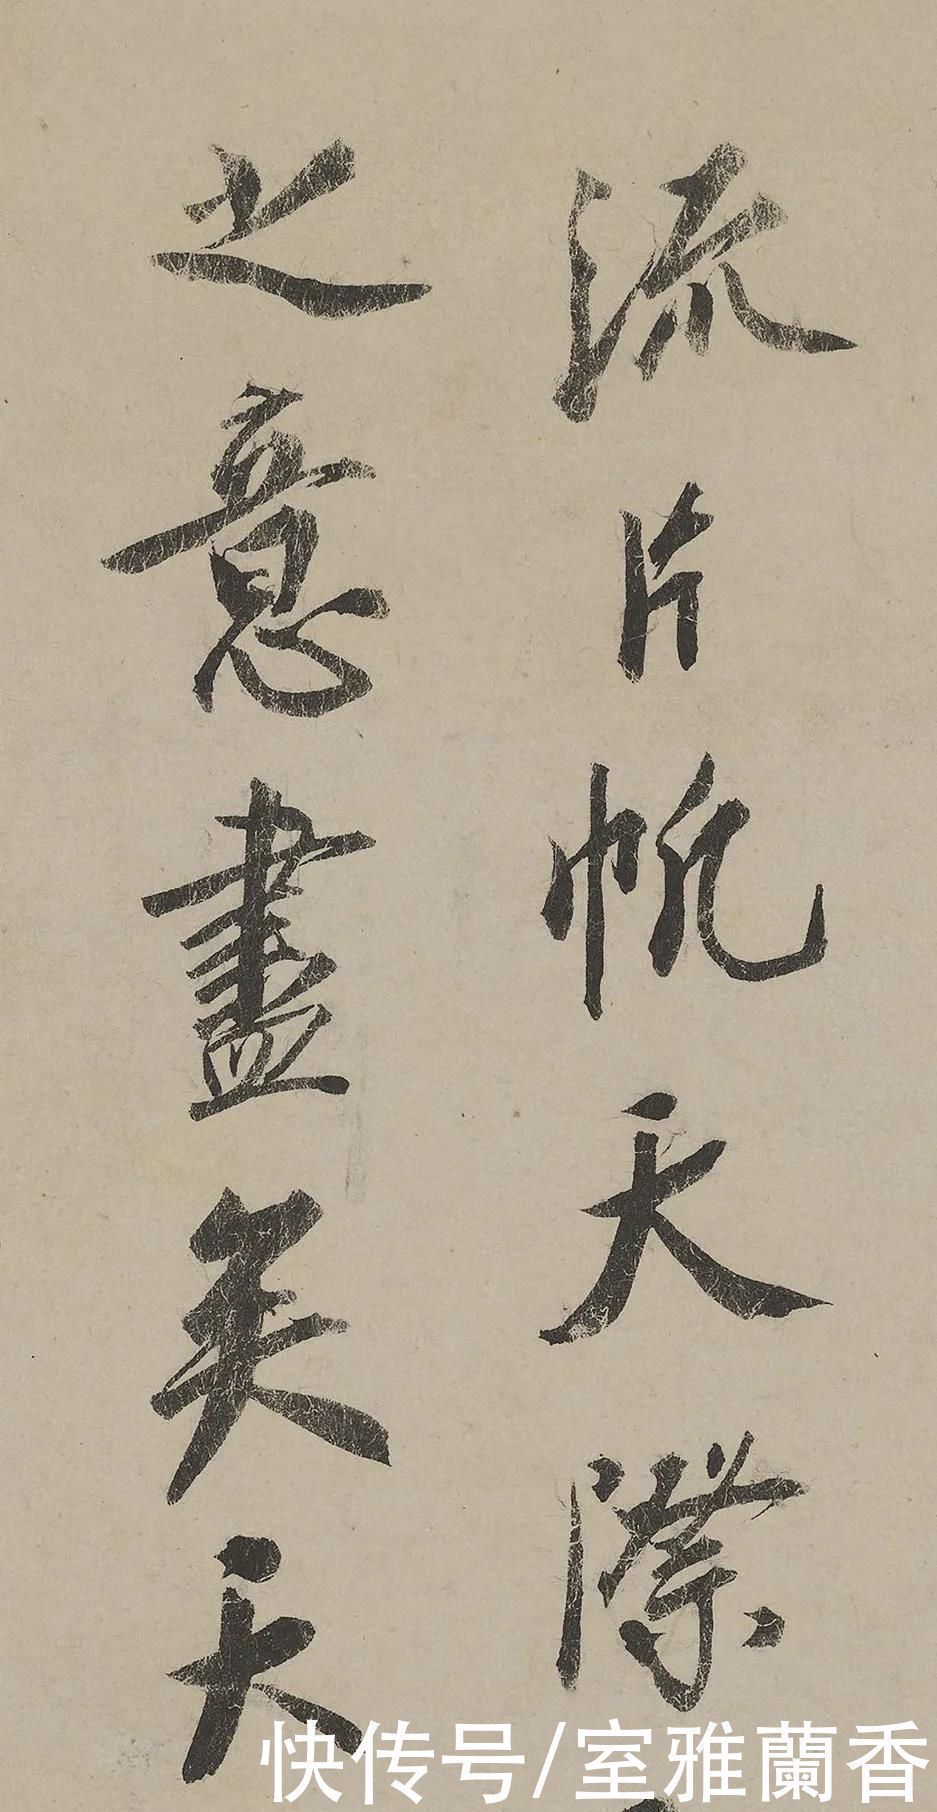 流片帆天際
之意盡矣天
快传号/室雅蘭香